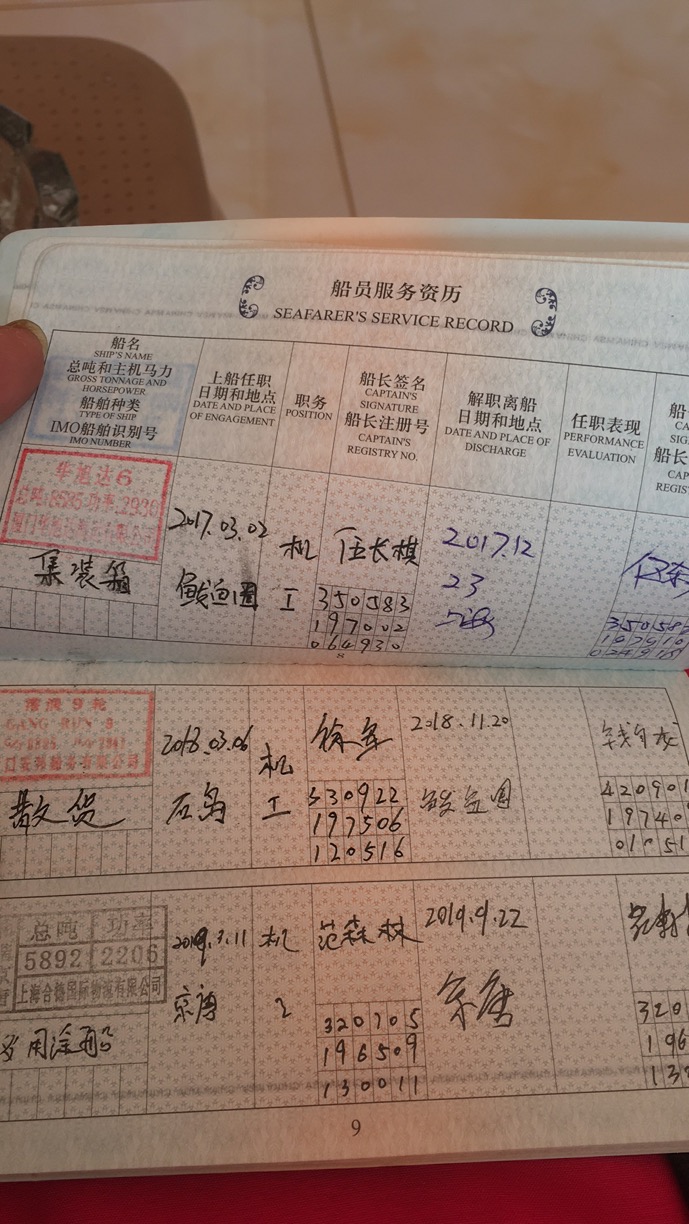 船员服务资历
SEAFARER'S SERVICE RECORD
船名
SHIP'S NAME
总吨和主机马力
GROSS TONNAGE AND
HORSEPOWER
船舶种类
TYPE OF SHIP
IMO船舶识别号
IMO NUMBER
上船任职
日期和地点
DATE AND PLACE
OF ENGAGEMENT
职务
POSITION
船长签名
CAPTAIN'S
SIGNATURE
船长注册号
CAPTAIN'S
REGISTRY NO.
解职离船
日期和地点
DATE AND PLACE OF
DISCHARGE
任职表现
PERFORMANCE
EVALUATION
船
船长
CAP
REGIS
华旭达6
总吨:8585功率:2930
集装箱
2017.03.02
鲅鱼圈
机
工
伍长棋
350583
197002
064930
2017.12
23
上海
8
9轮
散货
2018.03.06
石岛
机
工
徐军
330922
197506
120516
2018.11.20
鲅鱼圈
420901
19740
总吨 功率
5892 2206
上海合德国际物流有限公司
多用途船
2019.3.11
京唐
机
工
范森林
320705
196509
130011
2019.9.22
京唐
320
196
13
9